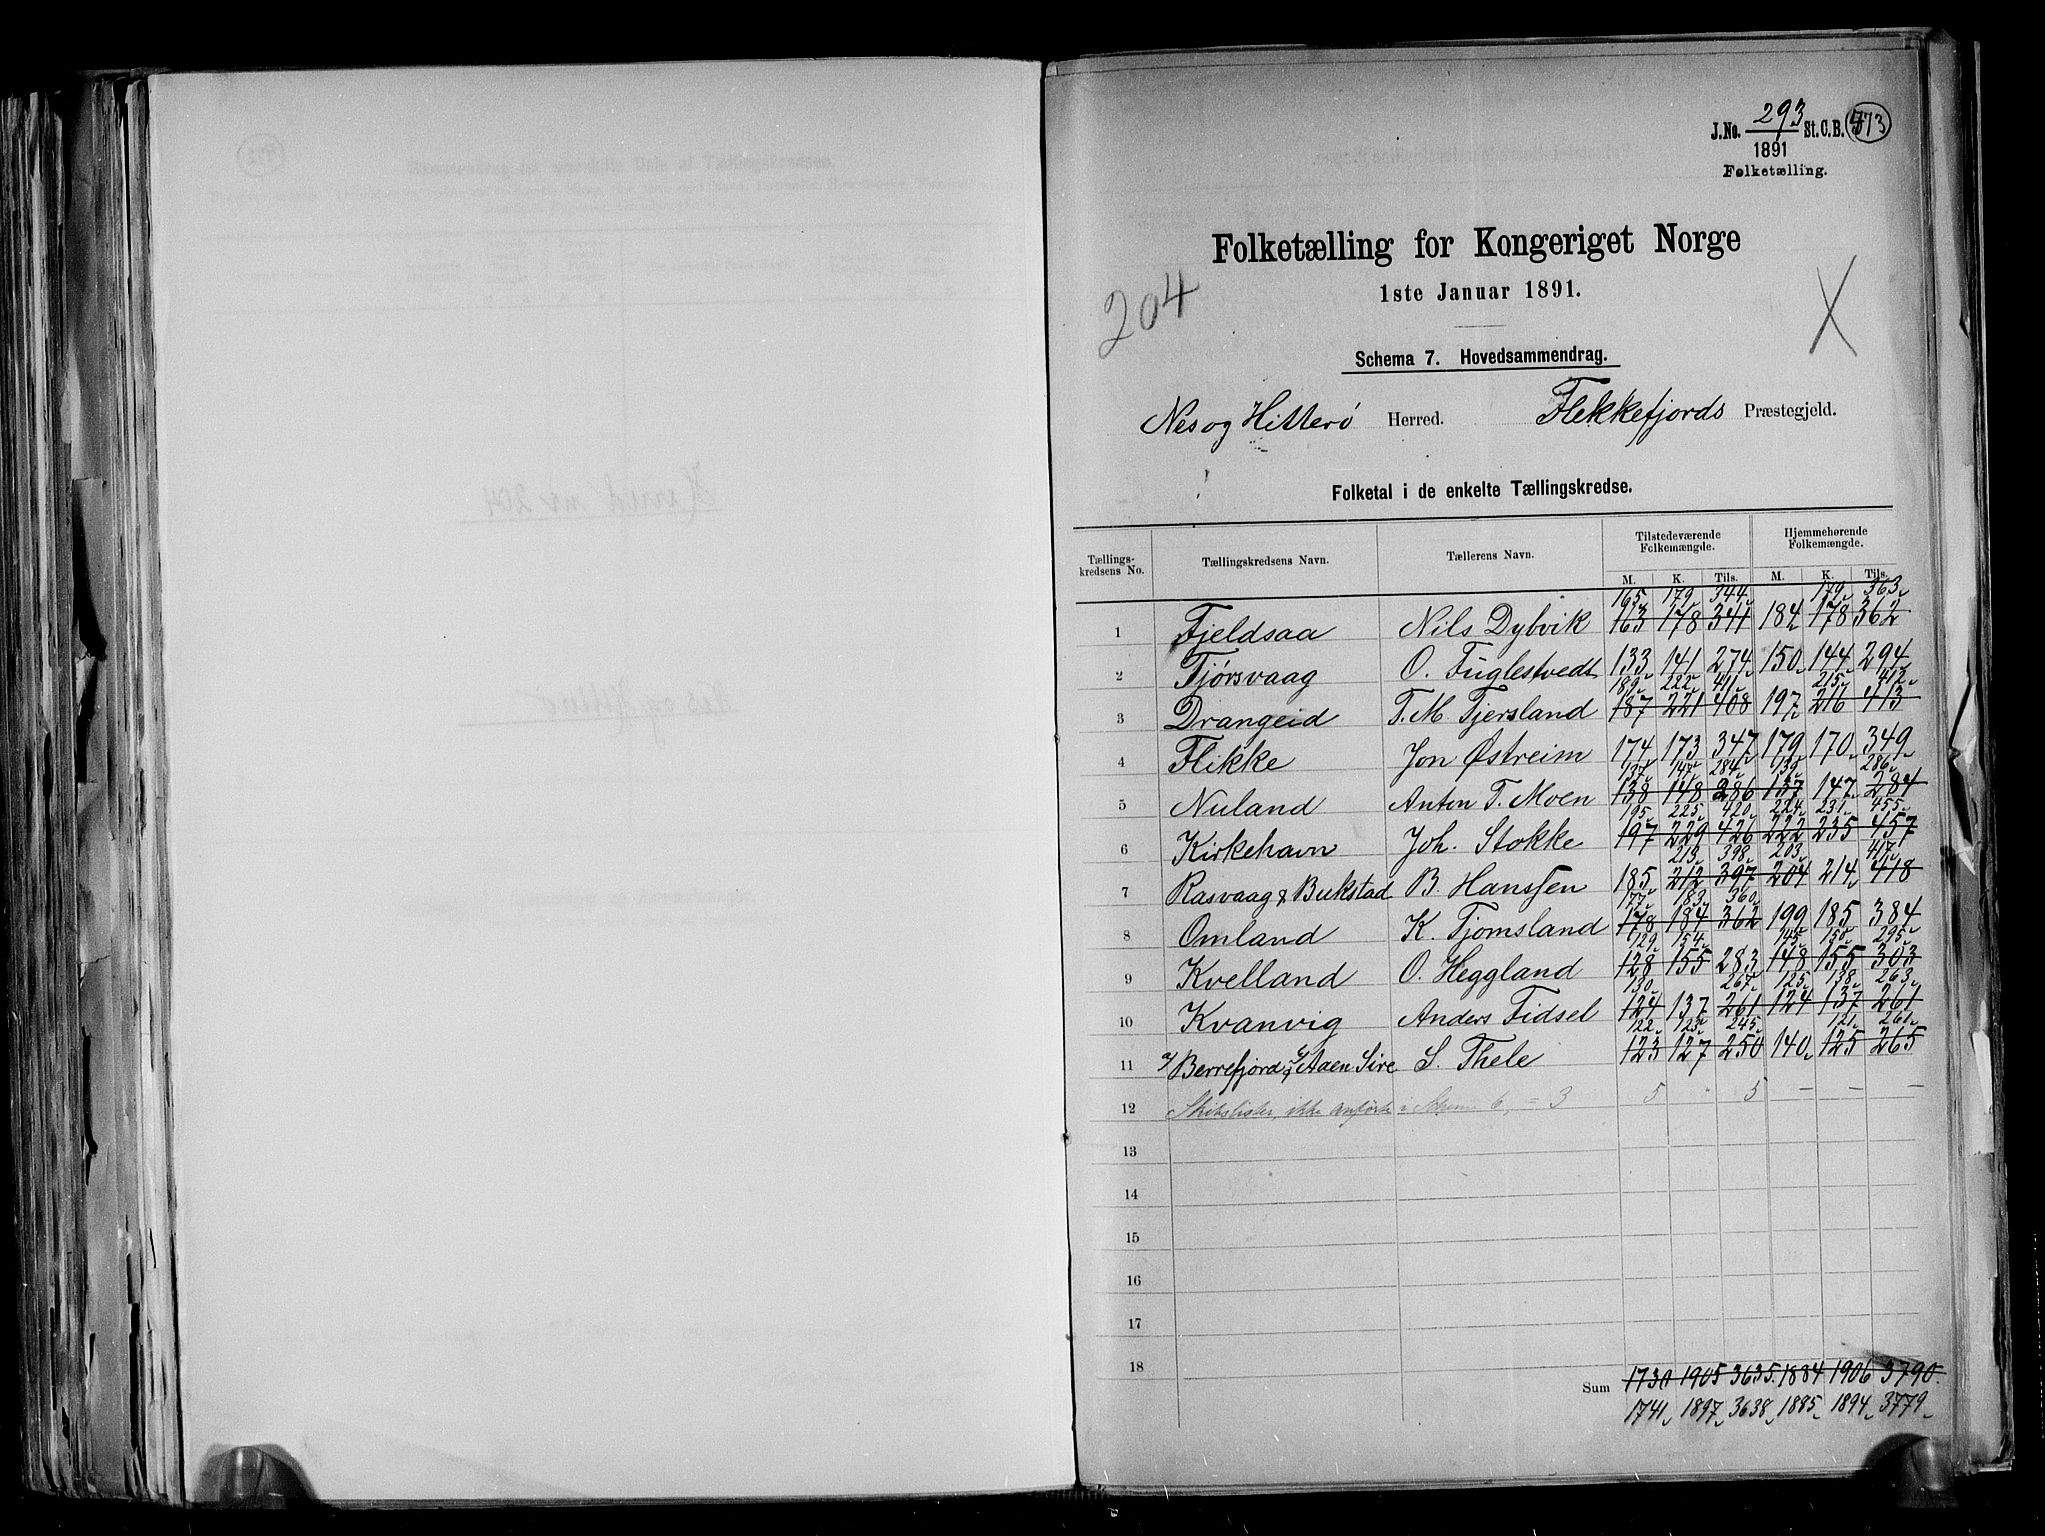 J.No. 293 St.C.B. 473
1891
Folketælling.
Folketælling for Kongeriget Norge
204
1ste Januar 1891.
X
Schema 7. Hovedsammendrag.
Nes og Hitterø Herred. Flekkefjords Præstegjeld.
Folketal i de enkelte Tællingskredse.
Tællings-kredsens No. Tællingskredsens Navn. Tællerens Navn. Tilstedeværende Folkemængde. Hjemmehørende Folkemængde.
M. K. Tils. M. K. Tils.
165 179 344 179 363
1 Fjeldsaa Nils Dybvik 163 178 341 184 178 362
2 Tjørsvaag O. Fuglestvedt 133 141 274 150 144 294
189 222 411 215 412
3 Drangeid T. M. Tjersland 187 221 408 197 216 413
4 Flikke Jon Østreim 174 173 347 179 170 349
137 147 284 139 286
5 Nuland Anton T. Moen 138 148 286 137 147 284
195 225 420 224 231 455
6 Kirkehavn Joh. Stokke 197 229 426 222 235 457
213 398 203 417
7 Rasvaag & Bukstad B. Hanssen 185 212 397 204 214 418
177 183 360
8 Omland K. Tjomsland 178 184 362 199 185 384
129 154 145 150 295
9 Kvelland O. Heggland 128 155 283 148 155 303
130 267 125 138 263
10 Kvanvig Anders Fidsel 124 137 261 124 137 261
122 123 245 121 261
11 Berrefjord & Aaen Sire S. Thele 123 127 250 140 125 265
12 Skibslister, ikke anførte i Schema 6, = 3 5 " 5 — — —
13
14
15
16
17
18
Sum 1730 1905 3635 1884 1906 3790
1741 1897 3638 1885 1894 3779